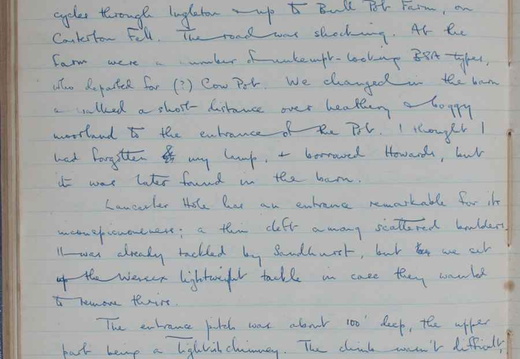 cycles through Ingleton & up to Bull Pot Farm, on
Casterton Fell. The road was shocking. At the
farm were a number of unkempt-looking BSA types,
who departed for (?) Cow Pot. We changed in the barn
& walked a short distance over heathery & boggy
moorland to the entrance of the Pot. I thought I
had forgotten my lamp, & borrowed Howards, but
it was later found in the barn.
Lancaster Hole has an entrance remarkable for its
inconspicuousness; a thin cleft among scattered boulders.
It was already tackled by Sandhurst, but we set
up the Wessex lightweight tackle in case they wanted
to remove theirs.
The entrance pitch was about 100' deep, the upper
part being a tightish chimney. The climb wasn't difficult,